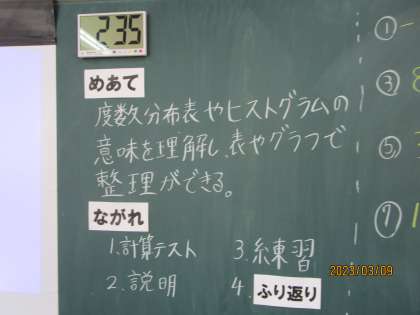 2 35
めあて
度数分布表やヒストグラムの
意味を理解し、表やグラフで
整理ができる。
ながれ
1.計算テスト
2.説明
3.練習
4.ふり返り
①-
③
⑤
⑦ 1
2023/03/09